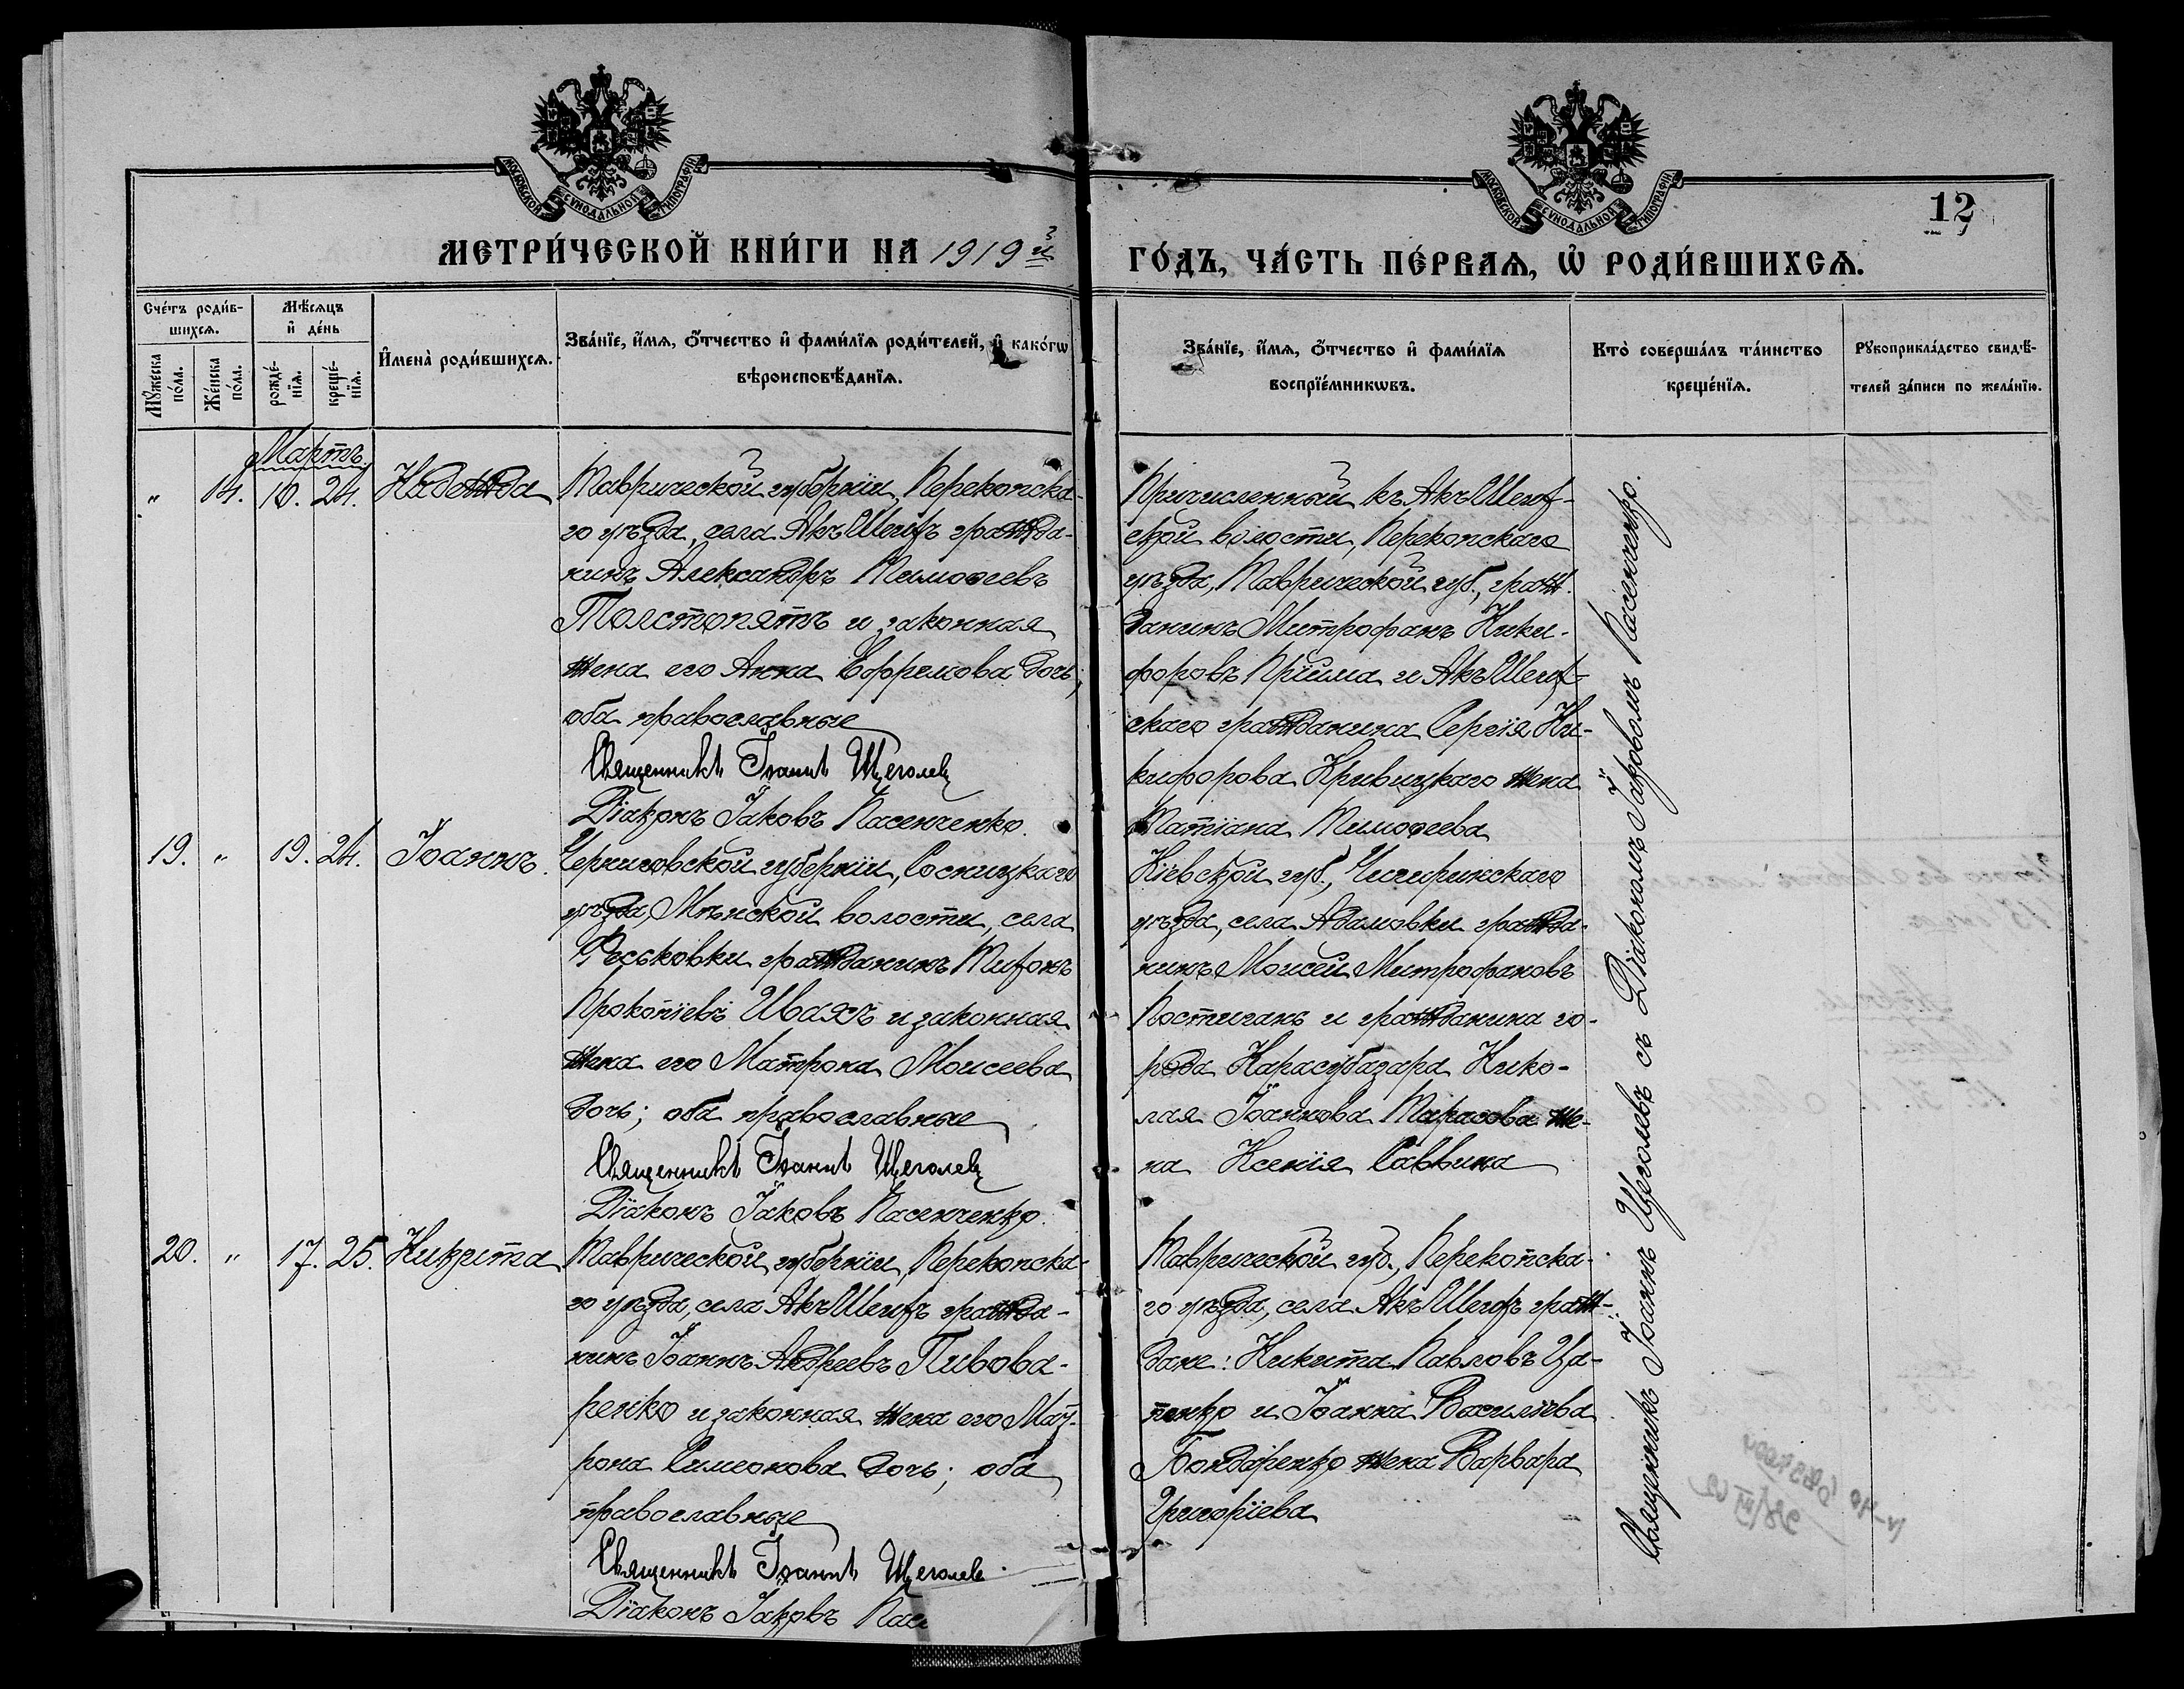 МОСКОВСКОЙ СѴНОДАЛЬНОЙ ТИПОГРАФІИ
МОСКОВСКОЙ СѴНОДАЛЬНОЙ ТИПОГРАФІИ
12
МЕТРИ́ЧЕСКОЙ КНИ́ГИ НА 1919 й
ГО́ДЪ, ЧА́СТЬ ПЕ́РВАѦ, Ѡ҆ РОДИ́ВШИХСѦ.
Сче́тъ роди́в-
шихсѧ.
Мꙋ́жеска
по́ла.
Же́нска
по́ла.
Мѣ́сѧцъ
и҆ де́нь
рожде́-
нїѧ.
креще́-
нїѧ.
И҆мена̀ роди́вшихсѧ.
Зва́нїе, и҆́мѧ, ѻ҆́тчество и҆ фами́лїѧ роди́телей, и҆ како́гѡ
вѣроисповѣ́данїѧ.
Зва́нїе, и҆́мѧ, ѻ҆́тчество и҆ фами́лїѧ
воспрїе́мникѡвъ.
Кто̀ соверша́лъ та́инство
креще́нїѧ.
Рꙋкоприкла́дство свидѣ́-
телей за́писи по жела́нїю.
Мартъ
„ 14. 10. 24. Надежда
Таврической губерніи, Перекопска-
го уѣзда, села Акъ Шеихъ гражда-
нинъ Александръ Тимоѳеевъ
Толстопятъ и законная
жена его Анна Ефремова дочь;
оба православные
Священникъ Іоаннъ Щеголевъ
Діаконъ Іаковъ Пасенченко.
Причисленный къ Акъ Шеих-
ской волости, Перекопскаго
уѣзда, Таврической губ., граж-
данинъ Митрофанъ Ники-
форовъ Пріима и Акъ Шеих-
скаго гражданина Сергія Ни-
кифорова Кривицкаго жена
Татіана Тимоѳеева
19. „ 19. 24. Іоаннъ.
Черниговской губерніи, Сосницкаго
уѣзда, Мѣнской волости, села
Ѳеськовки гражданинъ Тихонъ
Прокопіевъ Шваяхъ и законная
жена его Матрона Моисеева
дочь; оба православные
Священникъ Іоаннъ Щеголевъ
Діаконъ Іаковъ Пасенченко.
Кіевской губ., Чигиринскаго
уѣзда, села Адамовки гражда-
нинъ Моисей Митрофановъ
Постиганъ и гражданина го-
рода Карасубазара Нико-
лая Іоаннова Тарасова же-
на Ксенія Саввина
20. „ 17. 25. Никита
Таврической губерніи, Перекопска-
го уѣзда, села Акъ Шеихъ гражда-
нинъ Іоаннъ Андреевъ Пивова-
ренко и законная жена его Мат-
рона Симеонова дочь; оба
православные
Священникъ Іоаннъ Щеголевъ
Діаконъ Іаковъ Пасе
Таврической губ., Перекопска-
го уѣзда, села Акъ Шеихъ граж-
дане: Никита Павловъ Ца-
пенко и Іоанна Василіева
Бондаренко жена Варвара
Григоріева
Священникъ Іоаннъ Щеголевъ съ Діакономъ Іаковомъ Пасенченко.